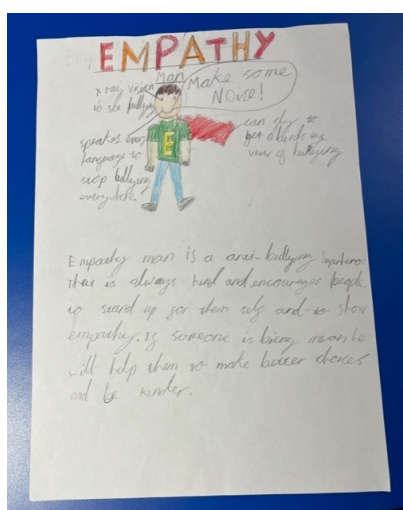 EMPATHY
Man
x ray vision
to see bullying
Make some
NOise!
speakes every
language to
stop bullying
everywhere.
can fly to
get a birds eye
view of bullying
Empathy man is a anti-bullying superhero
that is always kind and encourages people
to stand up for them self and to show
empathy. If someone is being mean he
will help them to make better choices
and be kinder.